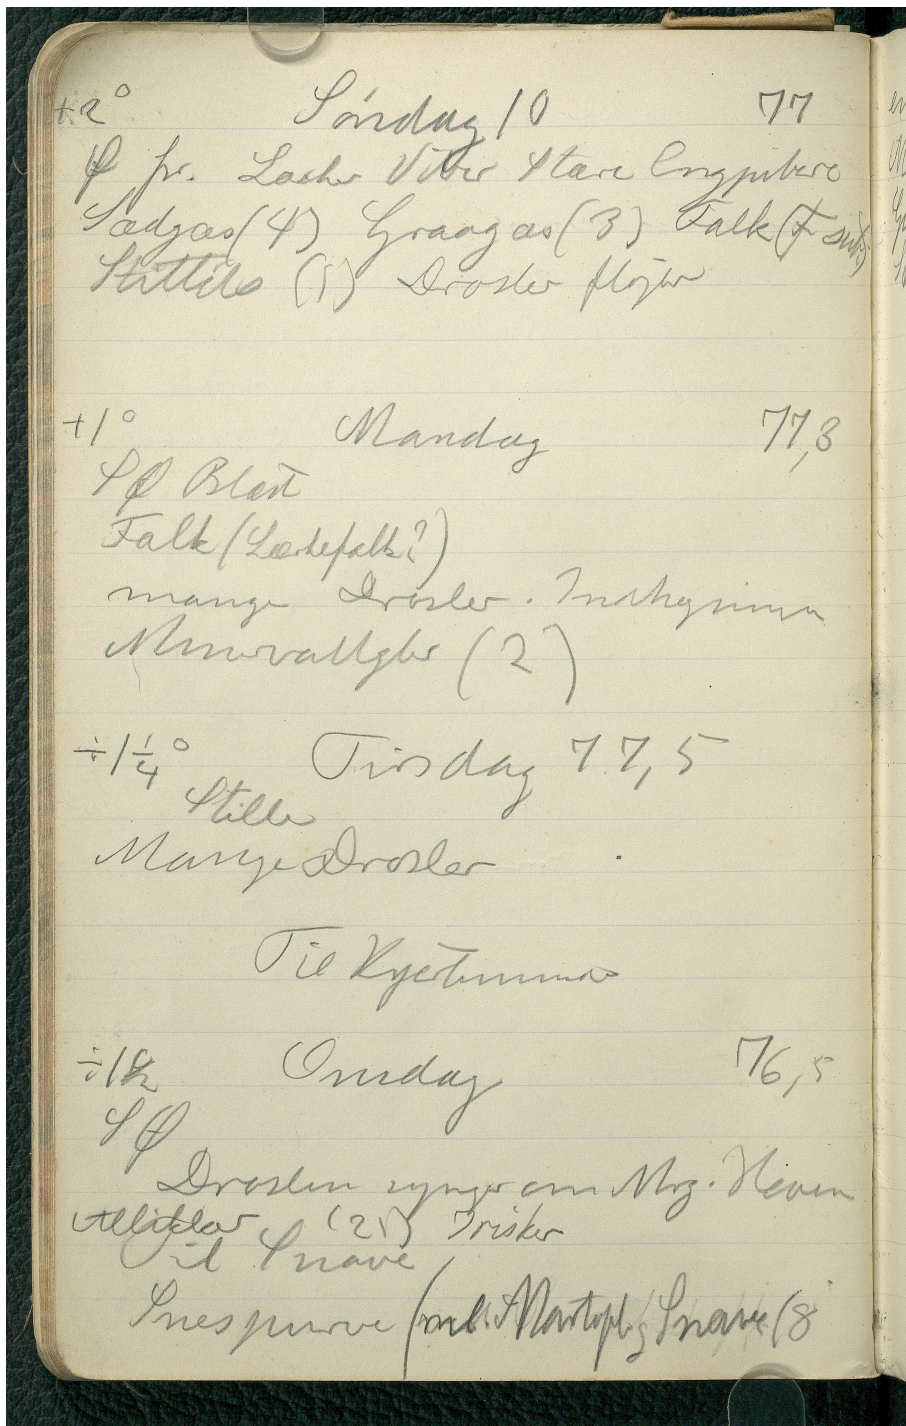 +2° Søndag 10 77
Ø fr. Lærker Viber Stære Engpibere
Sædgæs (4) Graagæs (3) Falk (F
Stillits (1) Drosler fløjter
+1° Mandag 77,3
SØ Blæst
Falk (Lærkefalk?)
mange Drosler.
(2)
÷1 1/4° Tirsdag 77,5
Stille
Mange Drosler
Til Kjerteminde
÷1 Onsdag 76,5
SØ
Droslen synger om Mrg. Haven
Stillitser (21) Irisker
Til Snave
Snespurve (ml. Martofte og Snave (8